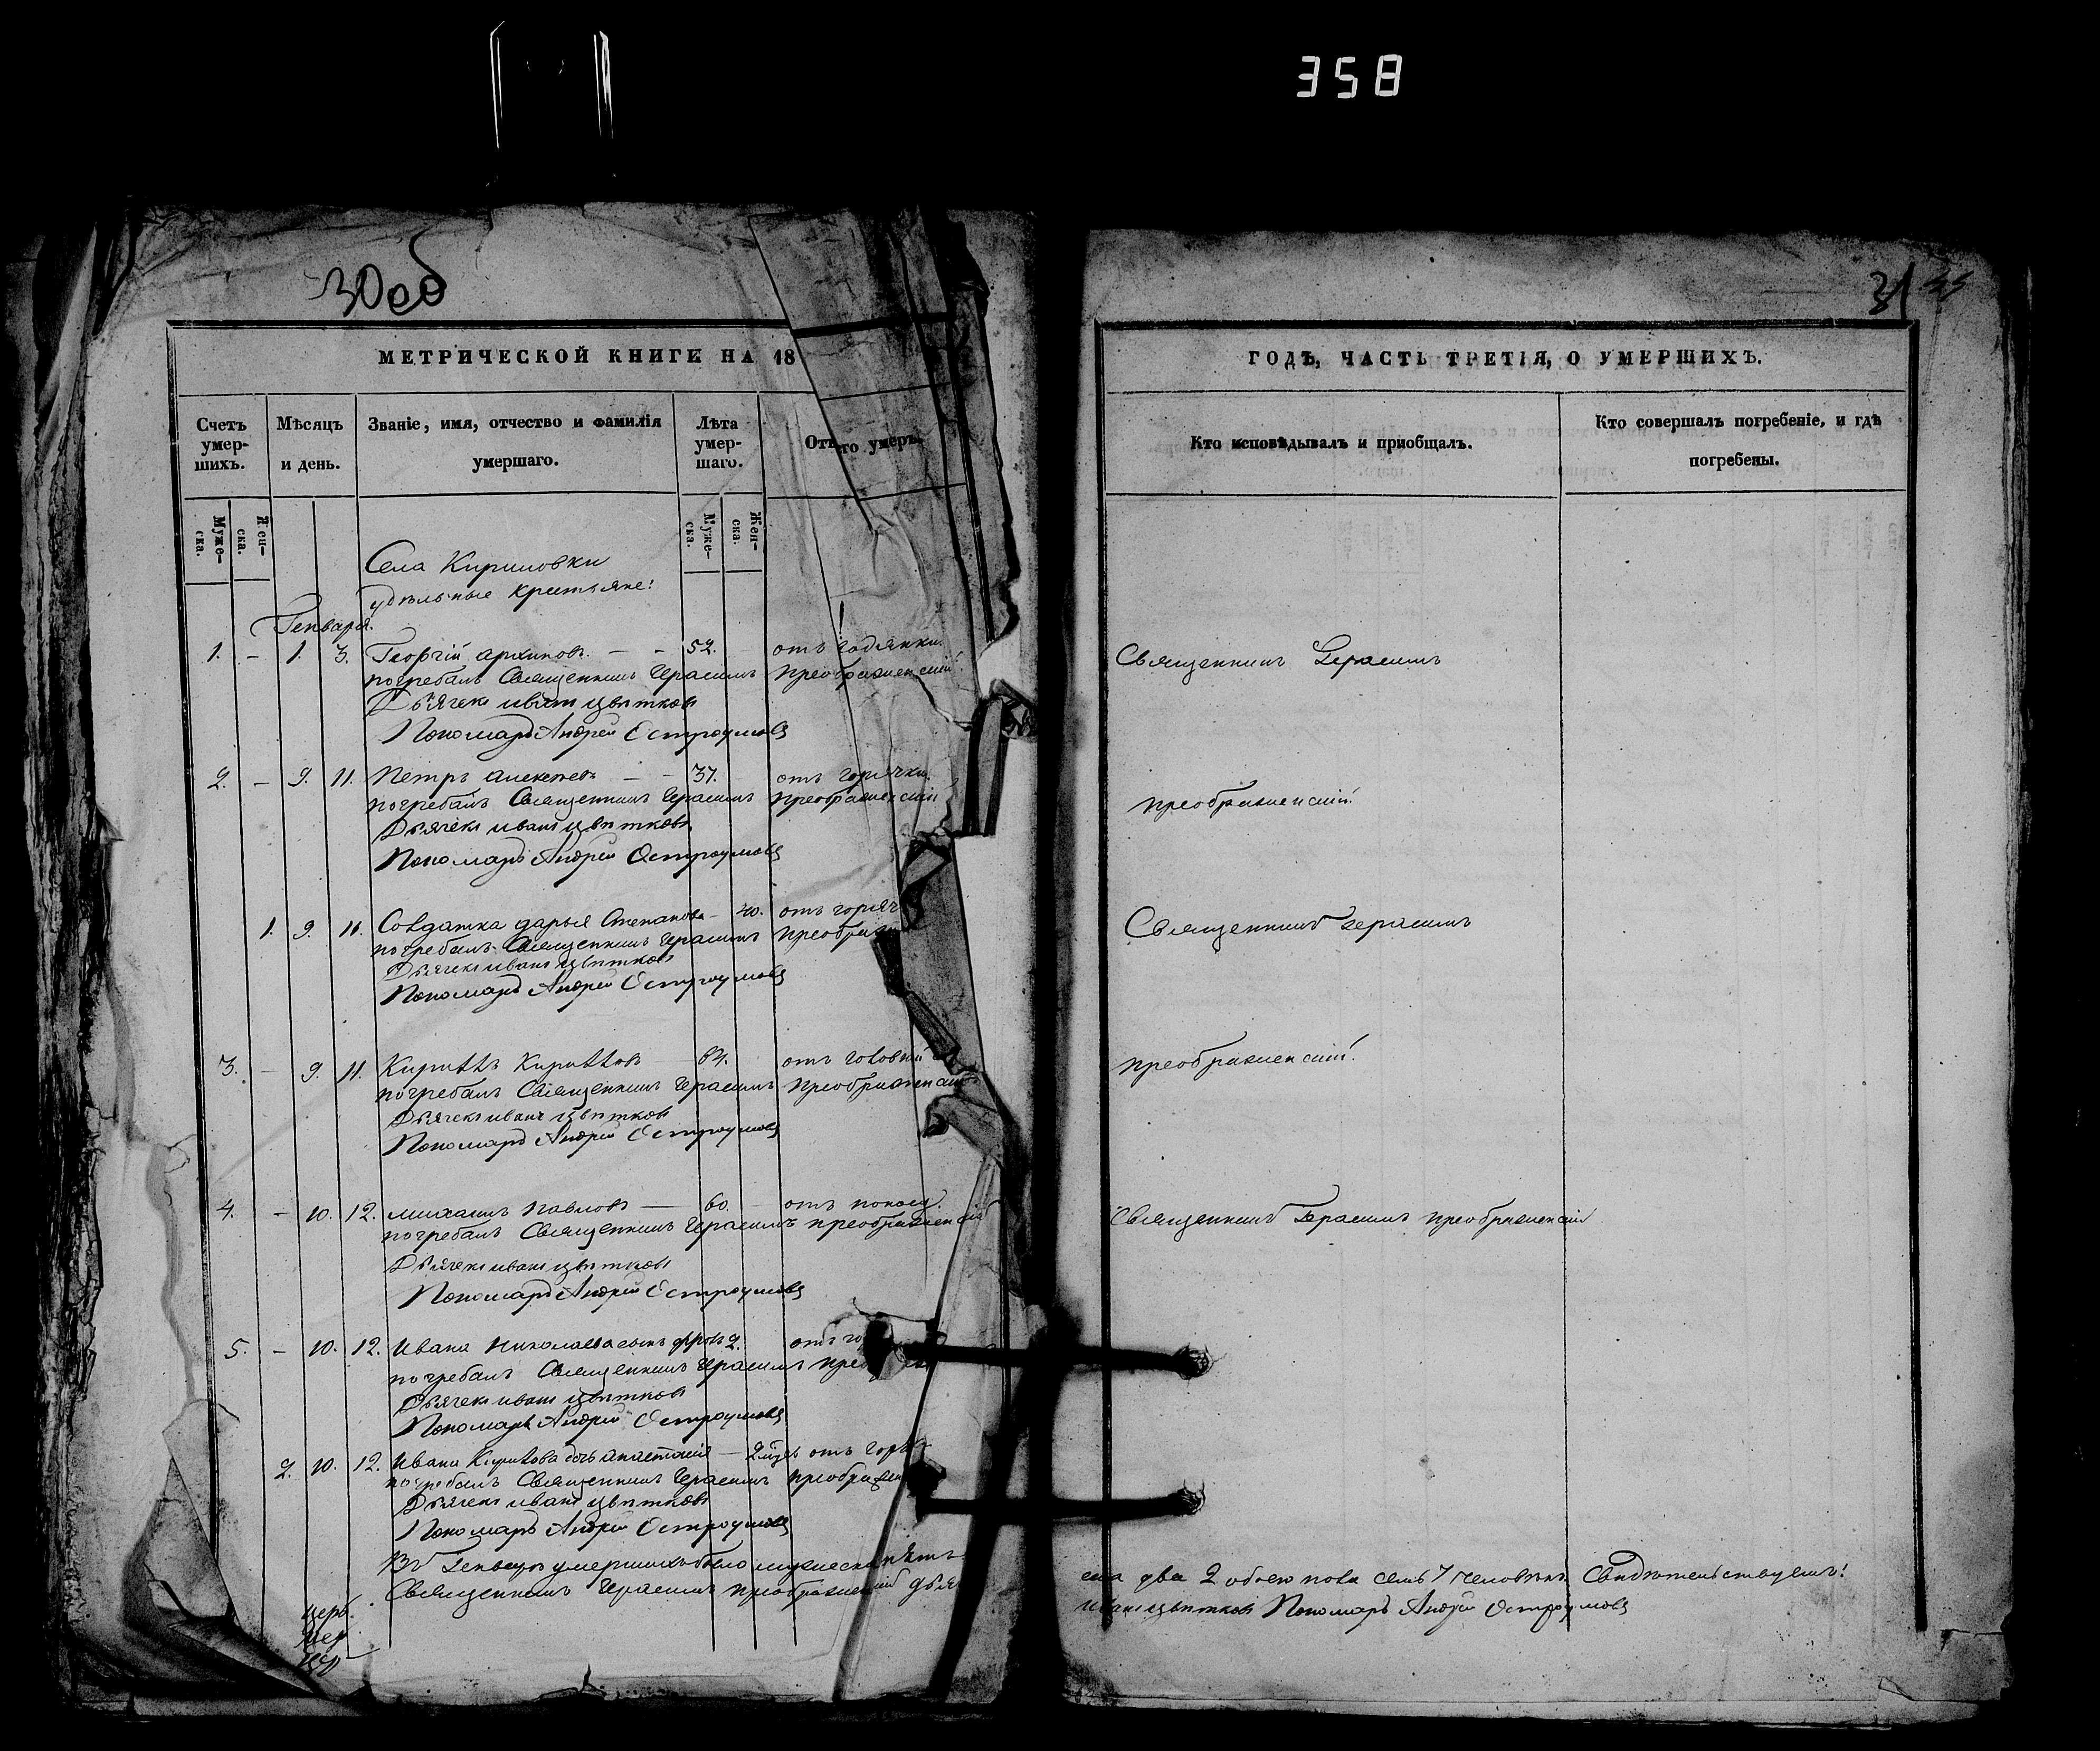 358
30 об
31
МЕТРИЧЕСКОЙ КНИГЕ НА 18
ГОДЪ, ЧАСТЬ ТРЕТІЯ, О УМЕРШИХЪ.
Счетъ умер-шихъ.
Мѣсяцъ и день.
Званіе, имя, отчество и фамилія умершаго.
Лѣта умер-шаго.
Отъ его умеръ.
Кто исповѣдывалъ и приобщалъ.
Кто совершалъ погребеніе, и гдѣ погребены.
Муже-ска.
Жен-ска.
Муже-ска.
Жен-ска.
Села Кириловки
удѣльные крестьяне:
Генваря.
1. – 1. 3. Георгій Архиповъ. – – 52. отъ водянки. Священникъ Герасимъ
погребалъ Священникъ Герасимъ Преображенскій.
Дьячекъ Иванъ Цвѣтковъ
Пономарь Андрей Остроумовъ
2. – 9. 11. Петръ Алексѣевъ – – 37. отъ горячки. Преображенскій.
погребалъ Священникъ Герасимъ Преображенскій
Дьячекъ Иванъ Цвѣтковъ
Пономарь Андрей Остроумовъ
1. 9. 11. Солдатка Дарья Степанова – 40. отъ горяч Священникъ Герасимъ
погребалъ Священникъ Герасимъ Преображ
Дьячекъ Иванъ Цвѣтковъ
Пономарь Андрей Остроумовъ
3. – 9. 11. Кириллъ Кирилловъ отъ головной Преображенскій.
погребалъ Священникъ Герасимъ Преображенскій
Дьячекъ Иванъ Цвѣтковъ
Пономарь Андрей Остроумовъ
4. – 10. 12. Михаилъ Павловъ – 60. – отъ поноса. Священникъ Герасимъ Преображенскій
погребалъ Священникъ Герасимъ Преображенскій
Дьячекъ Иванъ Цвѣтковъ
Пономарь Андрей Остроумовъ
5. – 10. 12. Ивана Николаева сынъ 2. отъ го
погребалъ Священникъ Герасимъ Прео
Дьячекъ Иванъ Цвѣтковъ
Пономарь Андрей Остроумовъ
2. 10. 12. Ивана Кирилова дочь Анастасія – отъ горя
погребалъ Священникъ Герасимъ Преображен
Дьячекъ Иванъ Цвѣтковъ
Пономарь Андрей Остроумовъ
Въ Генварѣ умершихъ было мужеска пять ска два 2 обоего пола семь 7 человѣкъ. Свидѣтельствуемъ:
Священникъ Герасимъ Преображенскій Дьяч Иванъ Цвѣтковъ Пономарь Андрей Остроумовъ